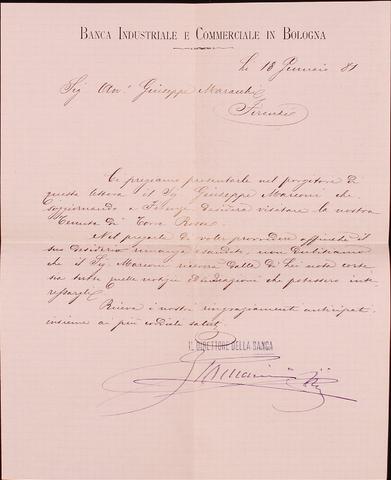 BANCA INDUSTRIALE E COMMERCIALE IN BOLOGNA
li 18 Gennaio 81
Sig Giuseppe
Firenze
Ci pregiamo presentarle nel porgitore di
questa lettera il Sig Giuseppe Marconi che
soggiornando a Firenze desidera visitare la nostra
Tenuta di Torre Rossa
Nel pregarla di voler provvedere affinchè il
suo desiderio rimanga esaudito, non dubitiamo
che il Sig Marconi riceverà dalle di Lei note corte
sie tutte quelle indicazioni che potessero inte
ressargli
Riceva i nostri ringraziamenti anticipati
insieme ai più cordiali saluti
IL DIRETTORE DELLA BANCA